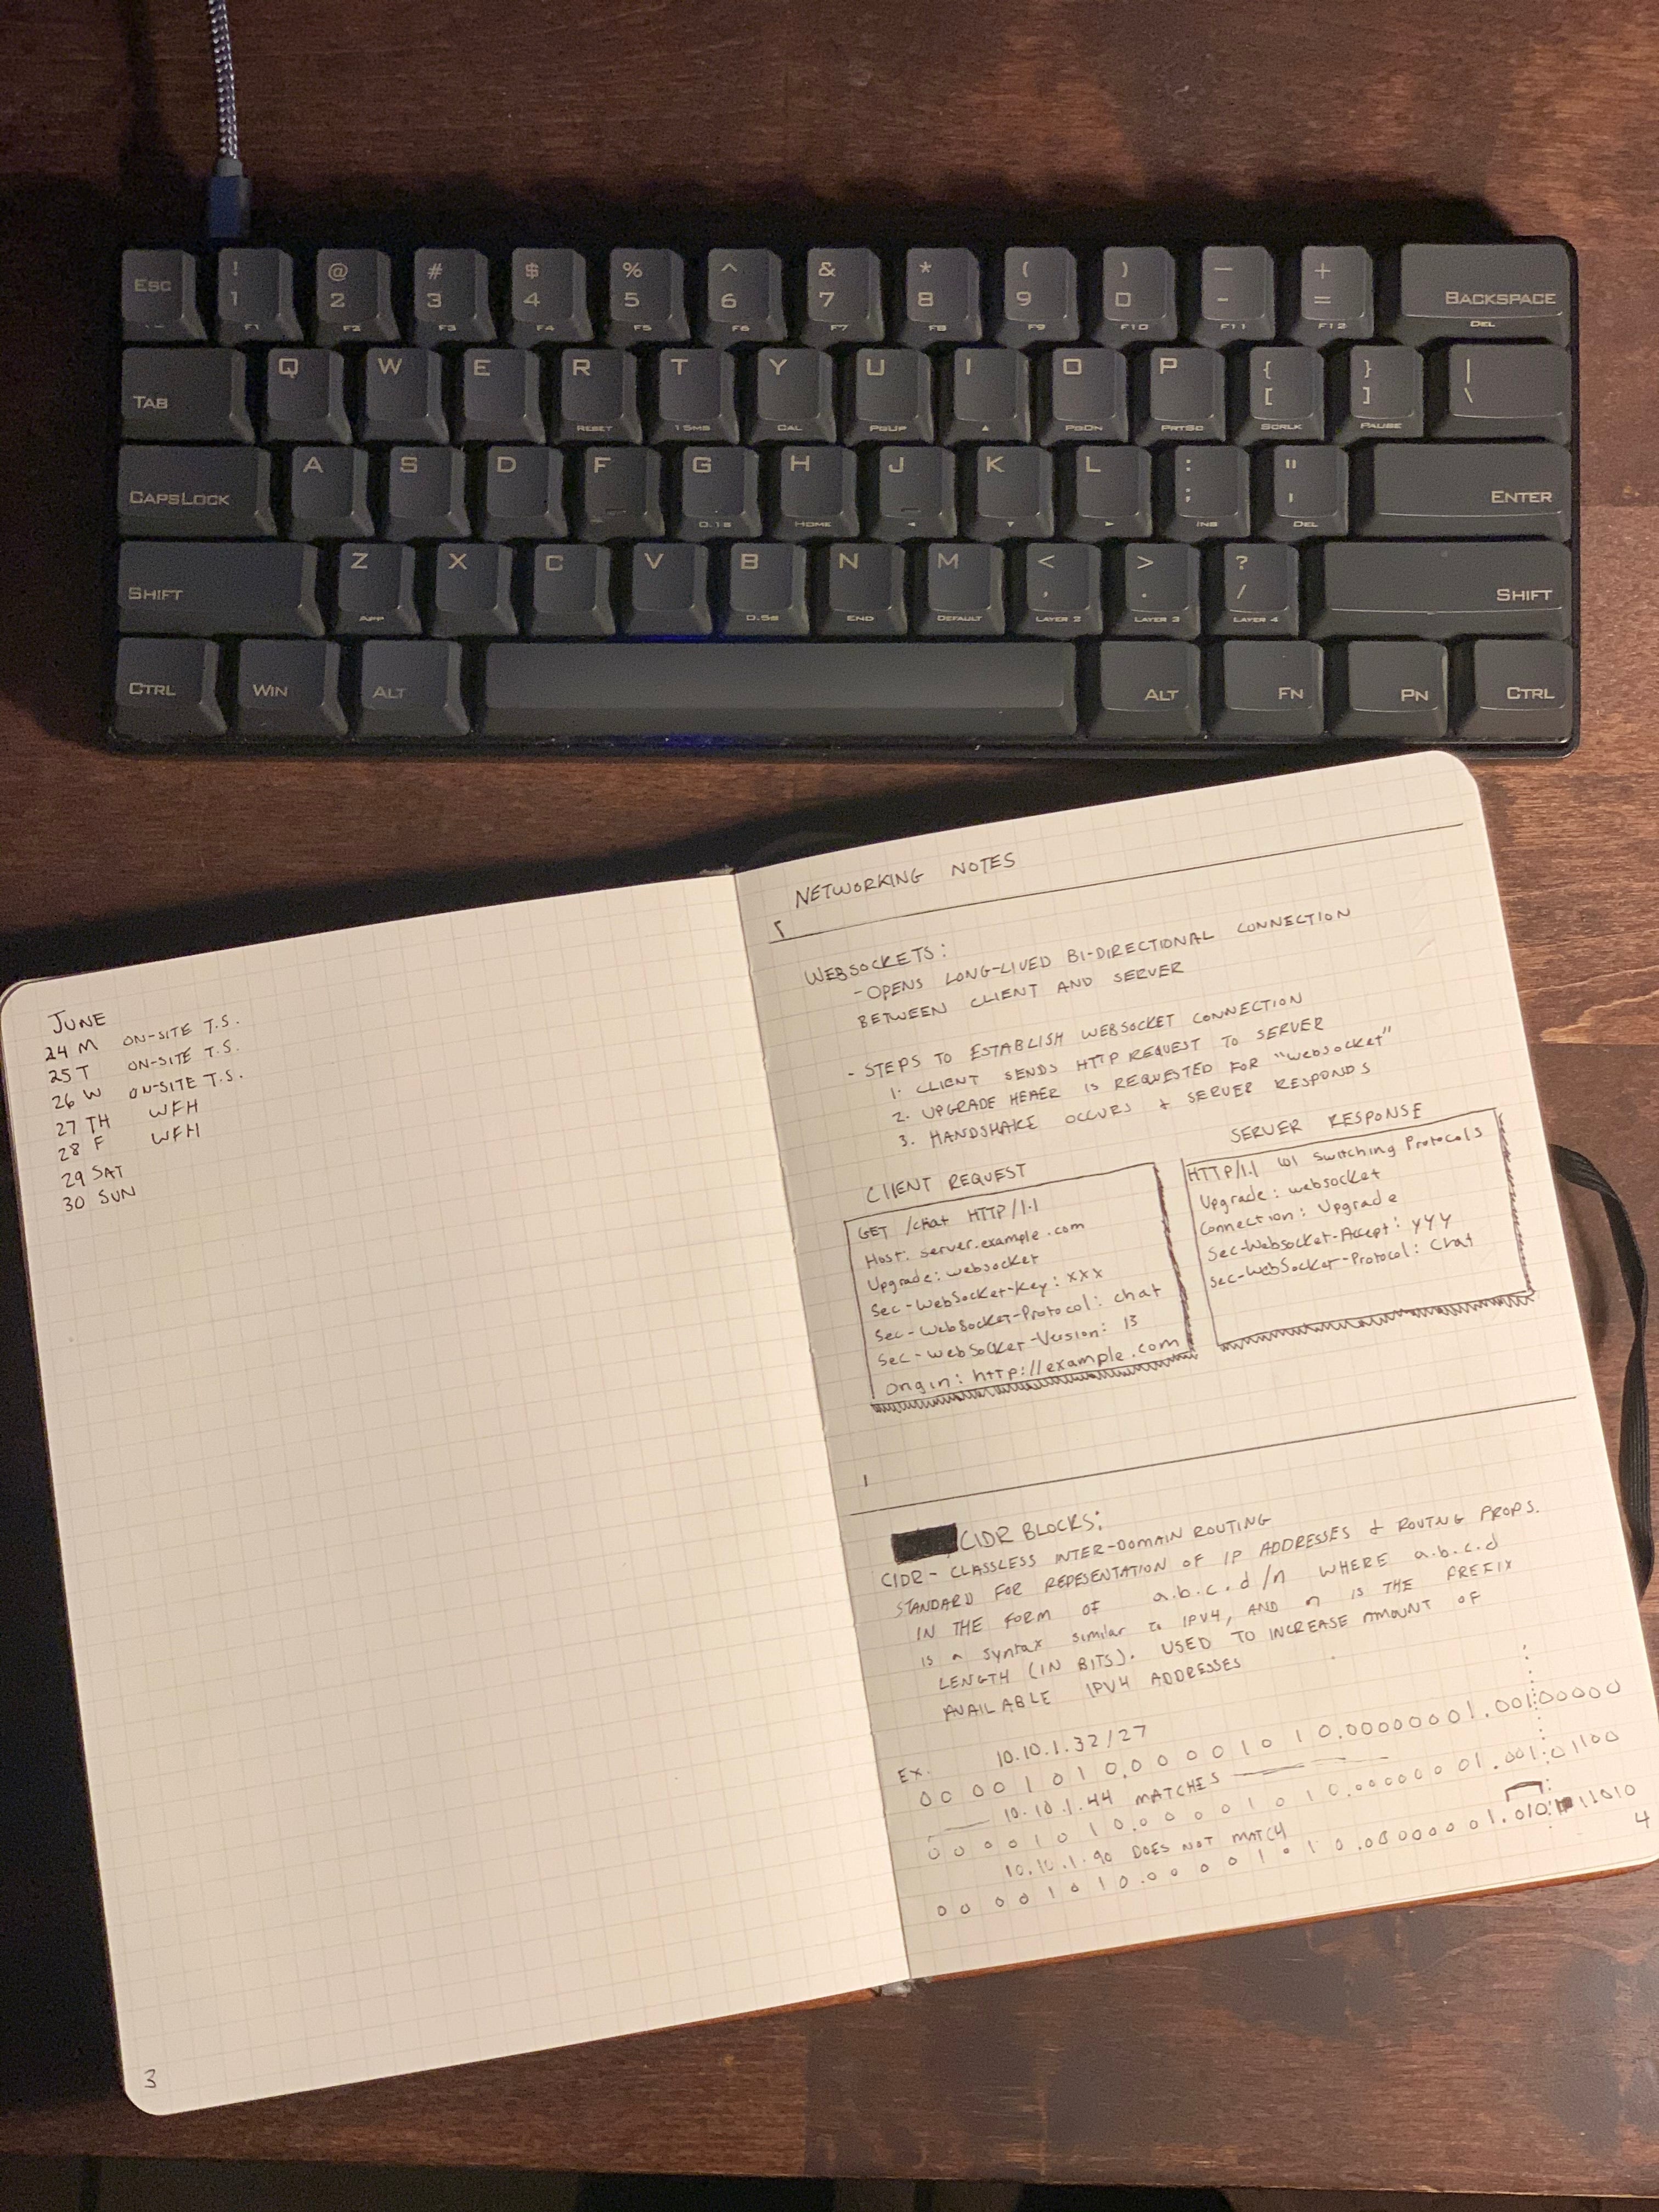 Esc ! 1 F1 @ 2 F2 # 3 F3 $ 4 F4 % 5 F5 ^ 6 F6 & 7 F7 * 8 F8 ( 9 F9 ) 0 F10 — - F11 + = F12 Backspace Del
Tab Q W E R Reset T 15ms Y Cal U PgUp I ▲ O PgDn P PrtSc { [ ScrLk } ] Pause | \
CapsLock A S D F G 0.1s H Home J ◄ K ▼ L ► : ; Ins " ' Del Enter
Shift Z App X C V B 0.5s N End M Default < , Layer 2 > . Layer 3 ? / Layer 4 Shift
Ctrl Win Alt Alt Fn Pn Ctrl
JUNE
24 M ON-SITE T.S.
25 T ON-SITE T.S.
26 W ON-SITE T.S.
27 TH WFH
28 F WFH
29 SAT
30 SUN
3
NETWORKING NOTES
WEBSOCKETS:
-OPENS LONG-LIVED BI-DIRECTIONAL CONNECTION
BETWEEN CLIENT AND SERVER
- STEPS TO ESTABLISH WEBSOCKET CONNECTION
1. CLIENT SENDS HTTP REQUEST TO SERVER
2. UPGRADE HEAER IS REQUESTED FOR "websocket"
3. HANDSHAKE OCCURS + SERVER RESPONDS
CLIENT REQUEST
GET /chat HTTP/1.1
Host: server.example.com
Upgrade: websocket
Sec-WebSocket-Key: xxx
Sec-WebSocket-Protocol: chat
Sec-WebSocket-Version: 13
Origin: http://example.com
SERVER RESPONSE
HTTP/1.1 101 Switching Protocols
Upgrade: websocket
Connection: Upgrade
Sec-WebSocket-Accept: yyy
Sec-WebSocket-Protocol: Chat
CIDR BLOCKS:
CIDR - CLASSLESS INTER-DOMAIN ROUTING
STANDARD FOR REPESENTATION OF IP ADDRESSES + ROUTING PROPS.
IN THE FORM OF a.b.c.d/n WHERE a.b.c.d
is a syntax similar to IPV4, AND n IS THE PREFIX
LENGTH (IN BITS). USED TO INCREASE AMOUNT OF
AVAILABLE IPV4 ADDRESSES
EX. 10.10.1.32/27
00001010.00001010.00000001.00100000
10.10.1.44 MATCHES
00001010.00001010.00000001.00101100
10.10.1.90 DOES NOT MATCH
00001010.00001010.00000001.010 11010
4